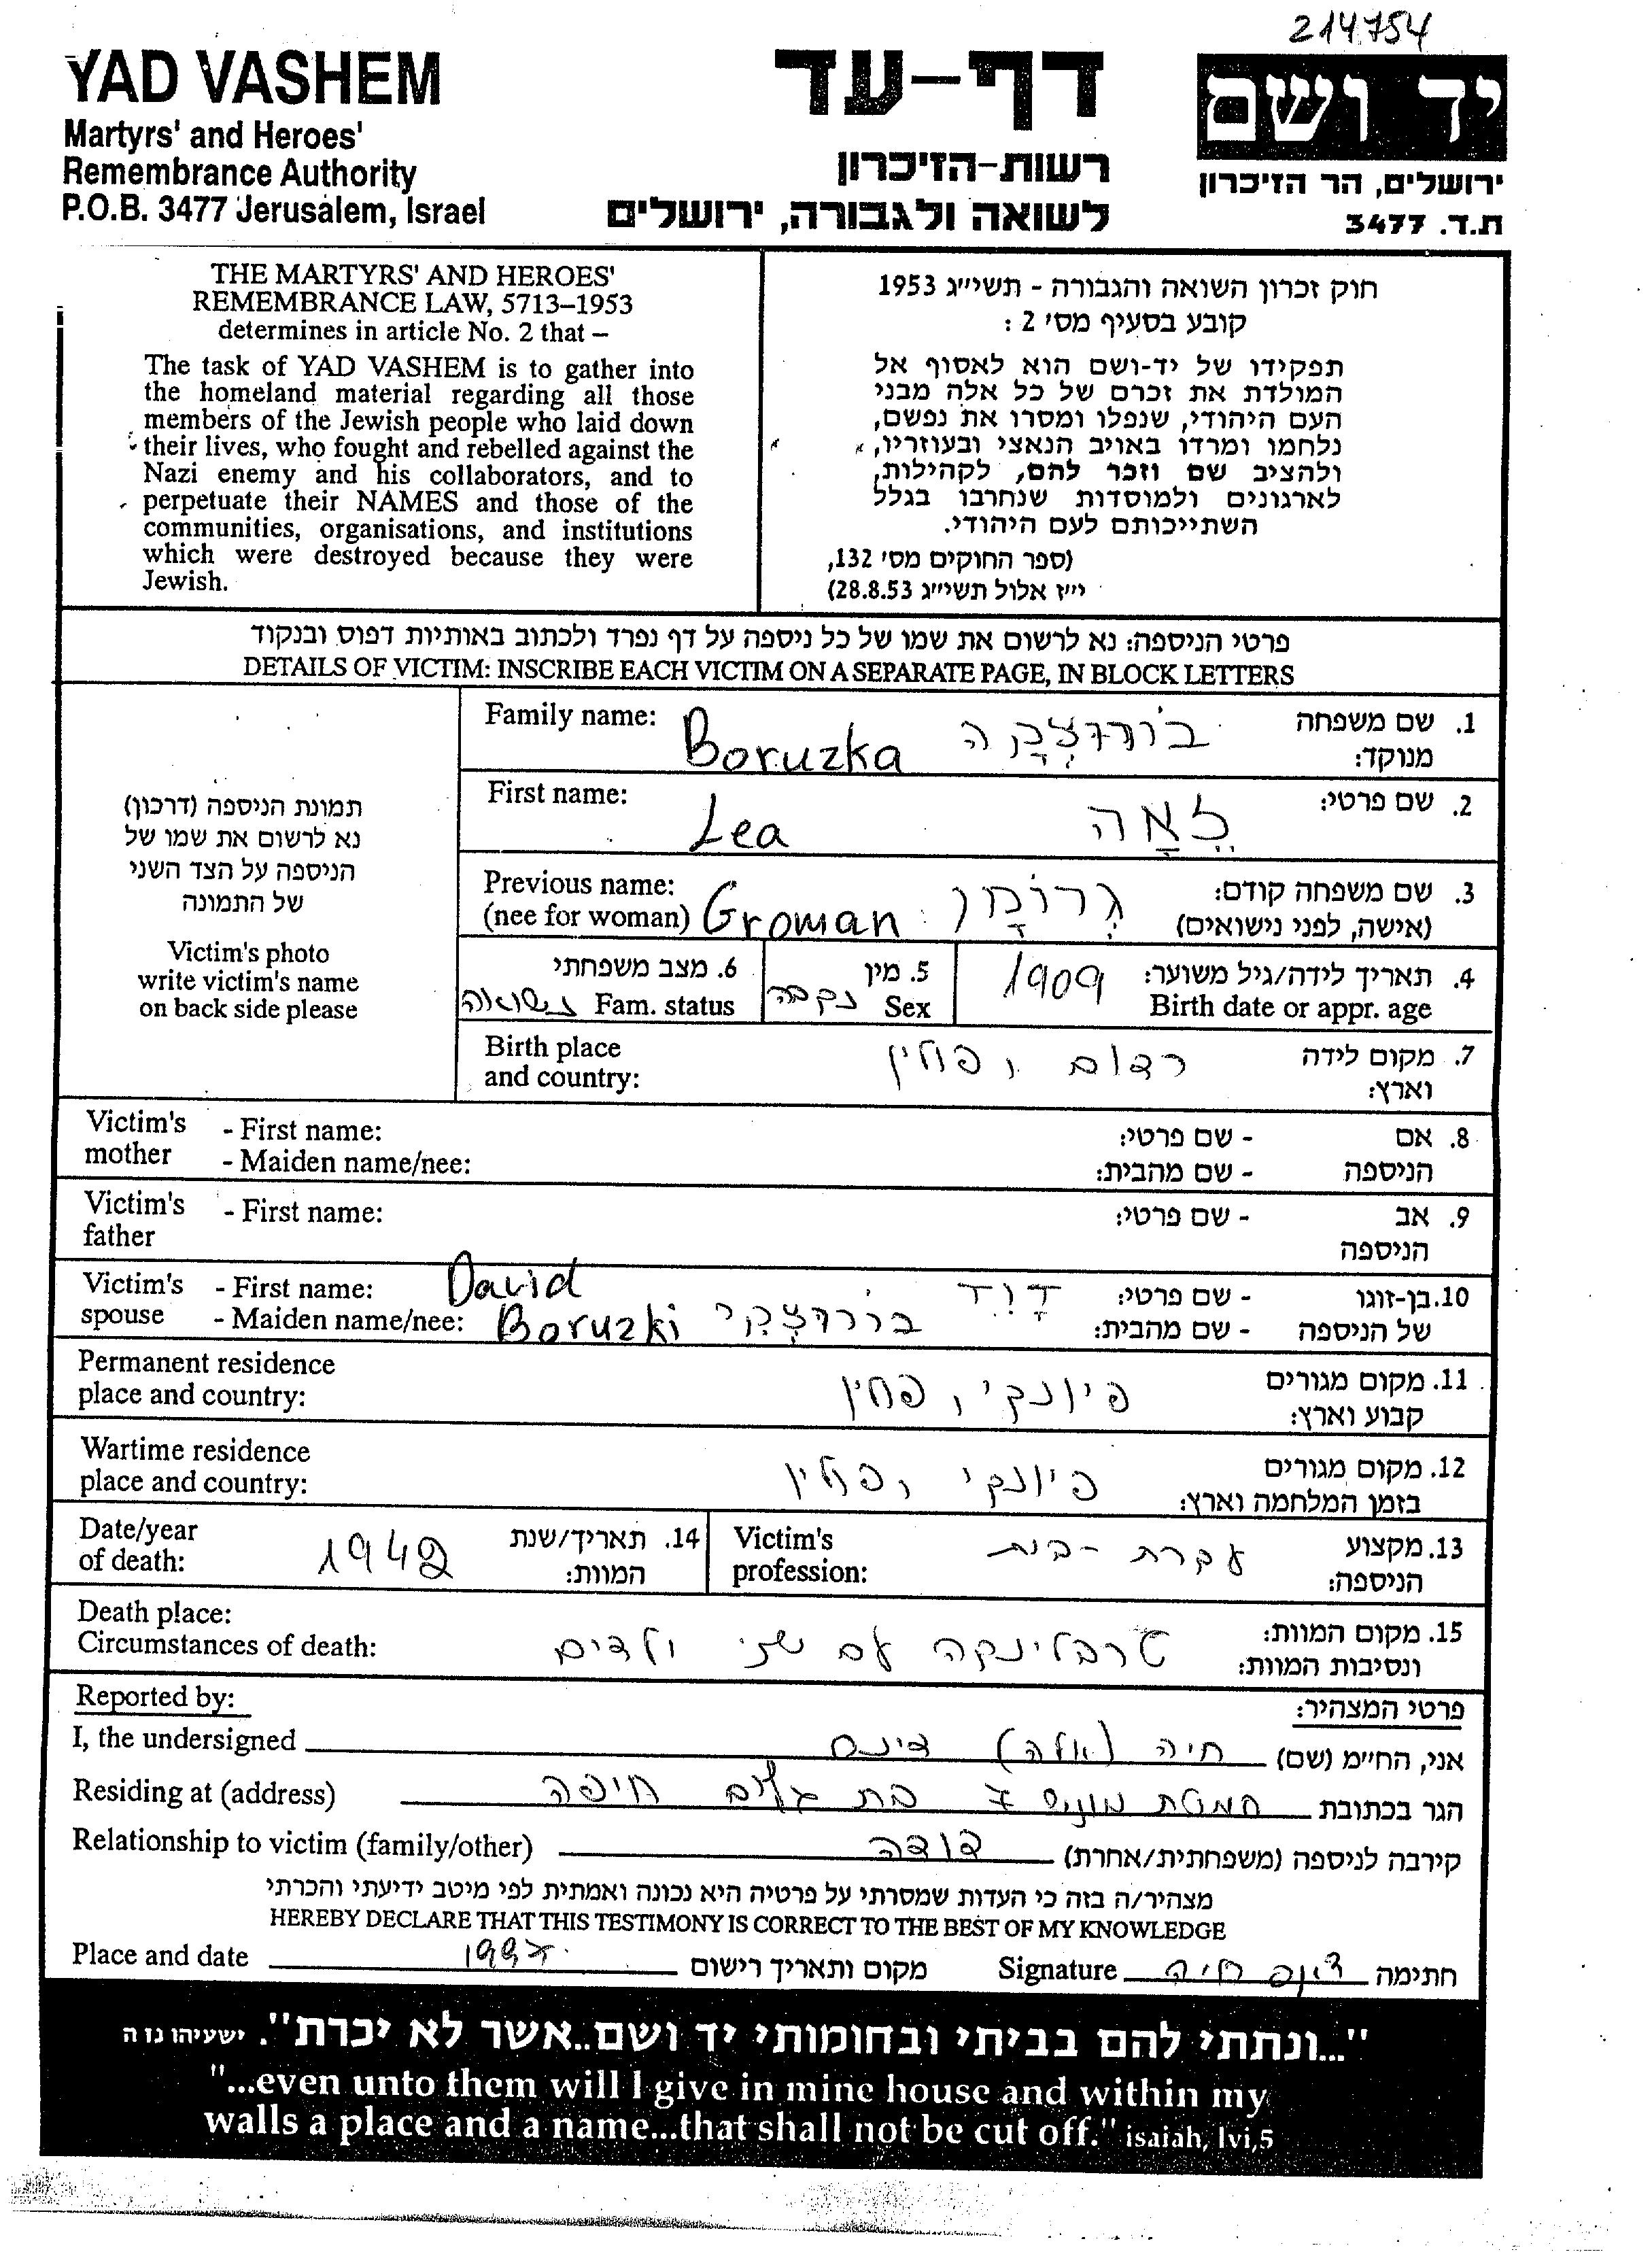 214754
YAD VASHEM
Martyrs' and Heroes'
Remembrance Authority
P.O.B. 3477 Jerusalem, Israel
דף-עד
רשות-הזיכרון
לשואה ולגבורה, ירושלים
יד ושם
ירושלים, הר הזיכרון
ת.ד. 3477
THE MARTYRS' AND HEROES'
REMEMBRANCE LAW, 5713–1953
determines in article No. 2 that –
The task of YAD VASHEM is to gather into
the homeland material regarding all those
members of the Jewish people who laid down
their lives, who fought and rebelled against the
Nazi enemy and his collaborators, and to
perpetuate their NAMES and those of the
communities, organisations, and institutions
which were destroyed because they were
Jewish.
חוק זכרון השואה והגבורה - תשי"ג 1953
קובע בסעיף מס' 2 :
תפקידו של יד-ושם הוא לאסוף אל
המולדת את זכרם של כל אלה מבני
העם היהודי, שנפלו ומסרו את נפשם,
נלחמו ומרדו באויב הנאצי ובעוזריו,
ולהציב שם וזכר להם, לקהילות,
לארגונים ולמוסדות שנחרבו בגלל
השתייכותם לעם היהודי.
(ספר החוקים מס' 132,
י"ז אלול תשי"ג 28.8.53)
פרטי הניספה: נא לרשום את שמו של כל ניספה על דף נפרד ולכתוב באותיות דפוס ובנקוד
DETAILS OF VICTIM: INSCRIBE EACH VICTIM ON A SEPARATE PAGE, IN BLOCK LETTERS
תמונת הניספה (דרכון)
נא לרשום את שמו של
הניספה על הצד השני
של התמונה
Victim's photo
write victim's name
on back side please
Family name: Boruzka בּוֹרוּצְקָה 1. שם משפחה
מנוקד:
First name: Lea לֵאָה 2. שם פרטי:
Previous name: 3. שם משפחה קודם:
(nee for woman) Groman גְרוֹמָן (אישה, לפני נישואים)
6. מצב משפחתי 5. מין 4. תאריך לידה/גיל משוער: 1909
נשואה Fam. status נקבה Sex Birth date or appr. age
Birth place רדום, פולין 7. מקום לידה
and country: וארץ:
Victim's - First name: - שם פרטי: 8. אם
mother - Maiden name/nee: - שם מהבית: הניספה
Victim's - First name: - שם פרטי: 9. אב
father הניספה
Victim's - First name: David דָוִד - שם פרטי: 10. בן-זוגו
spouse - Maiden name/nee: Boruzki בּוֹרוּצְקִי - שם מהבית: של הניספה
Permanent residence פיונקי, פולין 11. מקום מגורים
place and country: קבוע וארץ:
Wartime residence פיונקי, פולין 12. מקום מגורים
place and country: בזמן המלחמה וארץ:
Date/year 1942 14. תאריך/שנת Victim's עקרת-בית 13. מקצוע
of death: המוות: profession: הניספה:
Death place: 15. מקום המוות:
Circumstances of death: טרבלינקה עם שני ילדים ונסיבות המוות:
Reported by: פרטי המצהיר:
I, the undersigned חיה (אלה) אני, החי"מ (שם)
Residing at (address) בת גלים חיפה הגר בכתובת
Relationship to victim (family/other) דודה קירבה לניספה (משפחתית/אחרת)
מצהיר/ה בזה כי העדות שמסרתי על פרטיה היא נכונה ואמתית לפי מיטב ידיעתי והכרתי
HEREBY DECLARE THAT THIS TESTIMONY IS CORRECT TO THE BEST OF MY KNOWLEDGE
Place and date 1997 מקום ותאריך רישום Signature חיה חתימה
"...ונתתי להם בביתי ובחומותי יד ושם..אשר לא יכרת". ישעיהו נו ה
"...even unto them will I give in mine house and within my
walls a place and a name...that shall not be cut off." isaiah, lvi,5